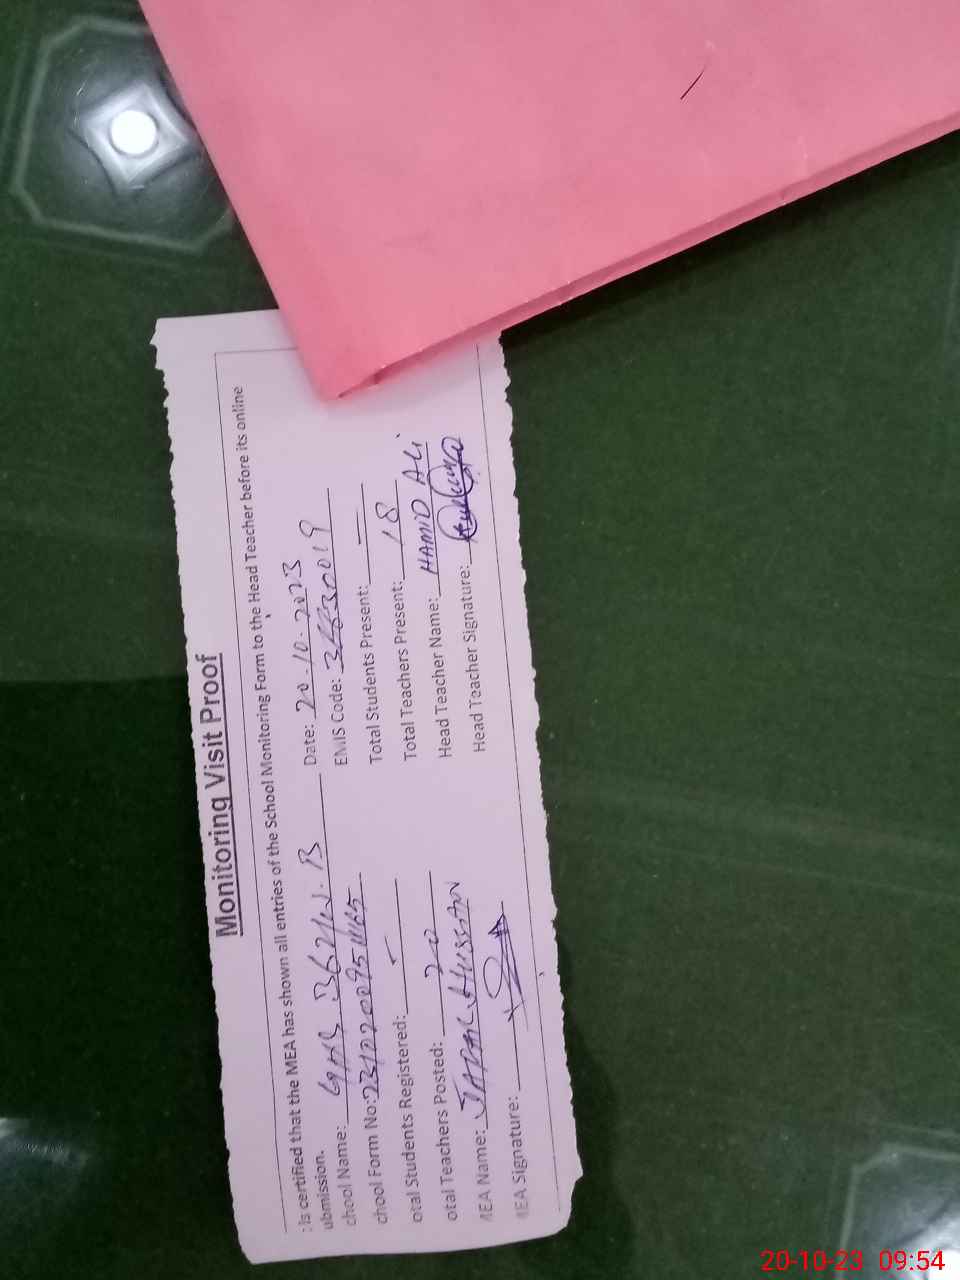 Monitoring Visit Proof
is certified that the MEA has shown all entries of the School Monitoring Form to the Head Teacher before its online
ubmission.
chool Name: GHS 362/W.B Date: 20-10-2023
chool Form No: EMIS Code:
otal Students Registered: - Total Students Present: =
otal Teachers Posted: 20 Total Teachers Present: 18
MEA Name: HUSSAN Head Teacher Name: HAMID ALi
MEA Signature: Head Teacher Signature:
20-10-23 09:54